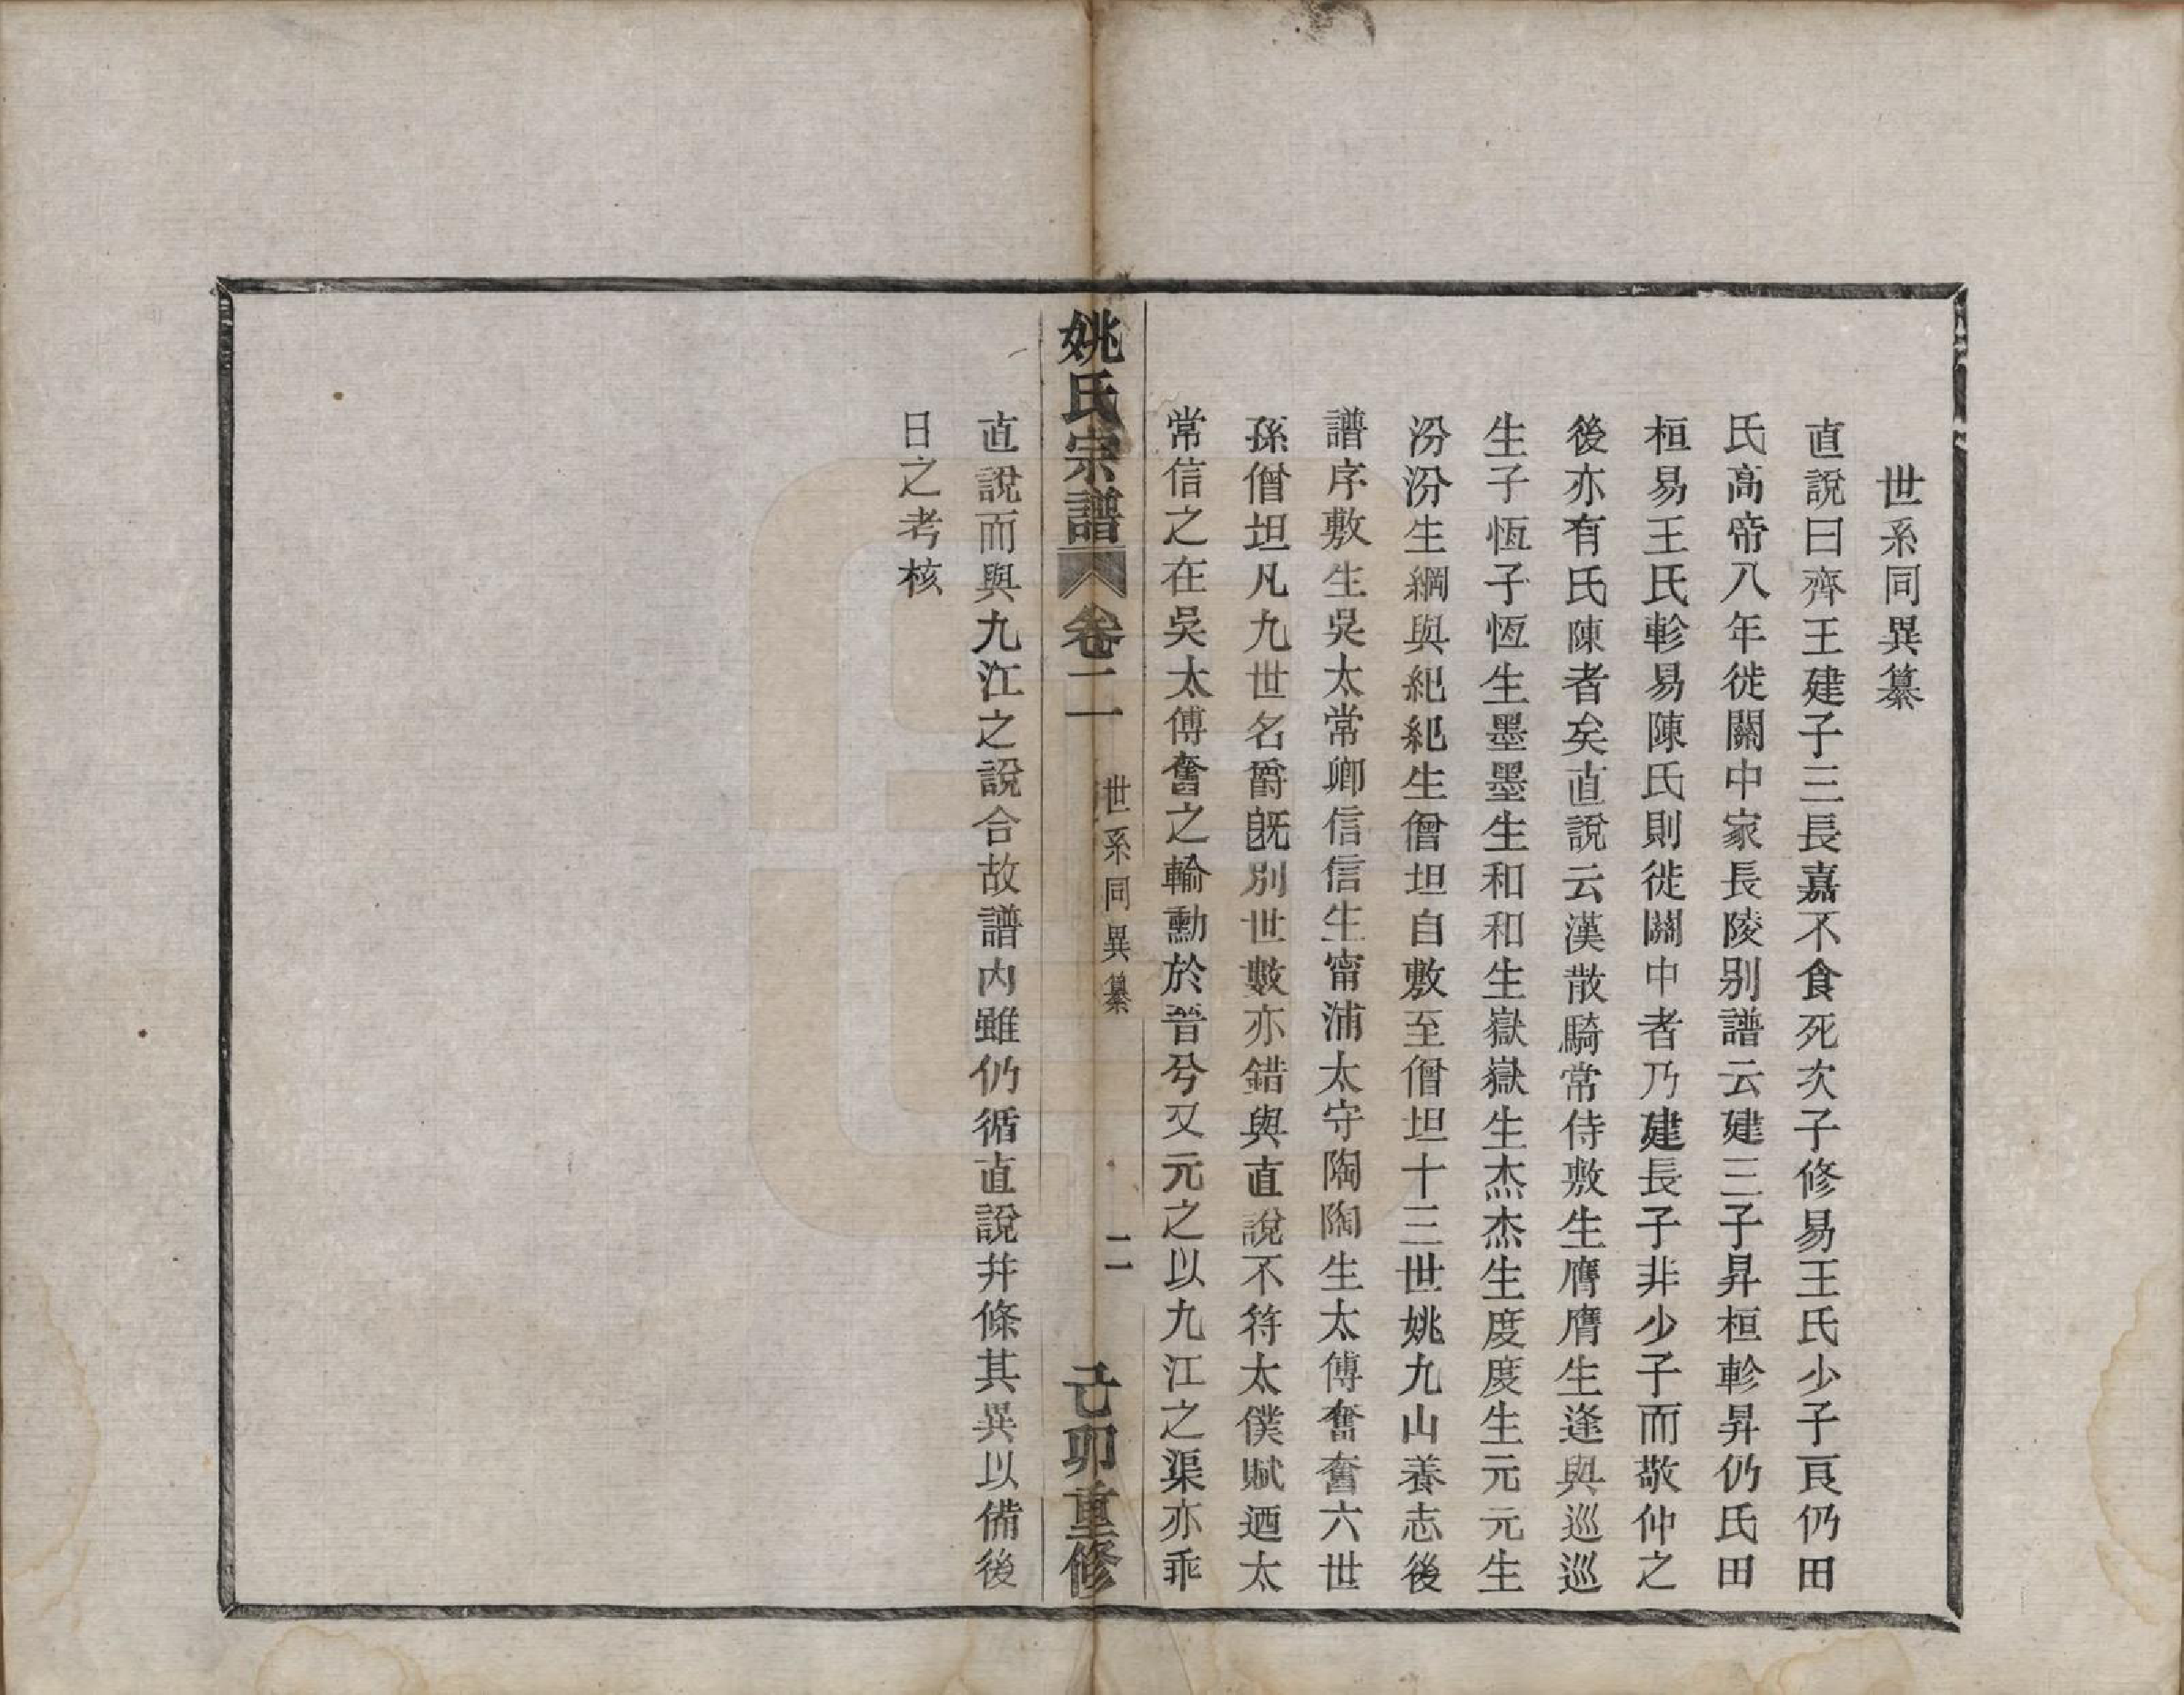 世系同異纂
直說曰齊王建子三長嘉不食死次子修易王氏少子亙仍田
氏高帝八年徙關中家長陵別譜云建三子昇桓軫昇仍氏田
桓易王氏軫易陳氏則徙關中者乃建長子非少子而敬仲之
後亦有氏陳者矣直說云漢散騎常侍敷生膺膺生逢與巡巡
生子恆子恆生墨墨生和和生嶽嶽生杰杰生度度生元元生
汾汾生綱與紀紀生僧坦自敷至僧坦十三世姚九山養志後
譜序敷生吳太常卿信信生甯浦太守陶陶生太傅奮奮六世
孫僧坦凡九世名爵旣別世數亦錯與直說不符太僕賦迺太
常信之在吳太傅奮之輸勳於晉兮又元之以九江之渠亦乖
姚氏宗譜 卷二 世系同異纂 二 己卯重修
直說而與九江之說合故譜內雖仍循直說幷條其異以備後
日之考核